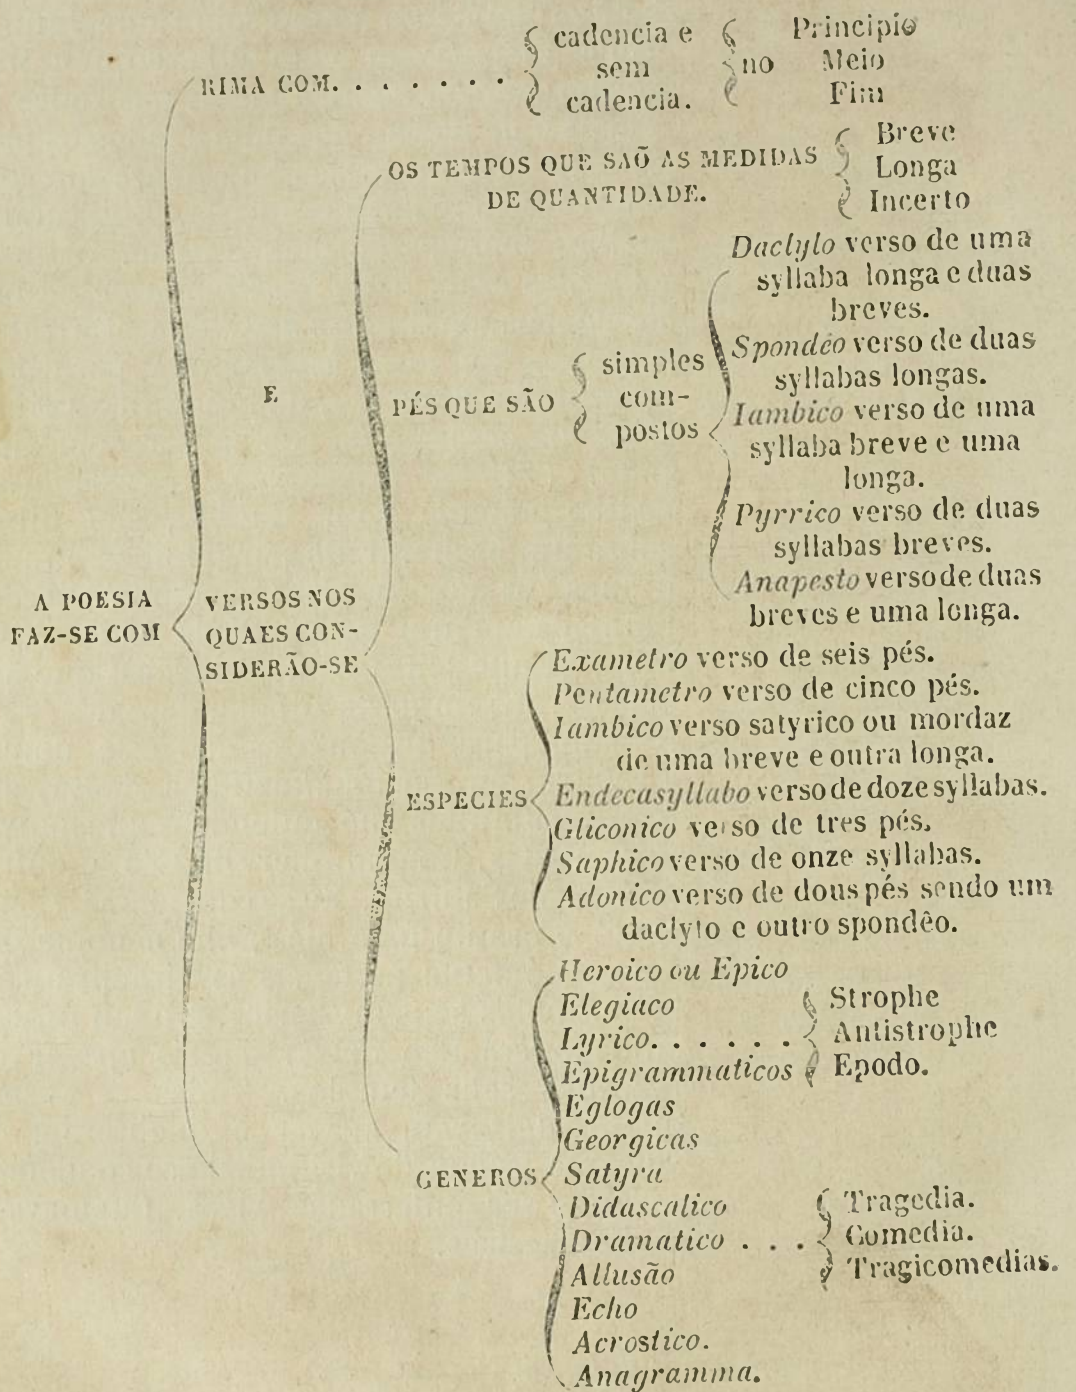 A POESIA
FAZ-SE COM
RIMA COM. . . . . . .
cadencia e
sem
cadencia.
no
Principio
Meio
Fim
E
VERSOS NOS
QUAES CON-
SIDERÃO-SE
OS TEMPOS QUE SAÕ AS MEDIDAS
DE QUANTIDADE.
Breve
Longa
Incerto
PÉS QUE SÃO
simples
com-
postos
Dactylo verso de uma
syllaba longa e duas
breves.
Spondêo verso de duas
syllabas longas.
Iambico verso de uma
syllaba breve e uma
longa.
Pyrrico verso de duas
syllabas breves.
Anapesto verso de duas
breves e uma longa.
ESPECIES
Exametro verso de seis pés.
Pentametro verso de cinco pés.
Iambico verso satyrico ou mordaz
de uma breve e outra longa.
Endecasyllabo verso de doze syllabas.
Gliconico verso de tres pés.
Saphico verso de onze syllabas.
Adonico verso de dous pés sendo um
dactyto e outro spondêo.
GENEROS
Heroico ou Epico
Elegiaco
Lyrico. . . . . .
Strophe
Antistrophe
Epodo.
Epigrammaticos
Eglogas
Georgicas
Satyra
Didascalico
Dramatico . . .
Tragedia.
Comedia.
Tragicomedias.
Allusão
Echo
Acrostico.
Anagramma.